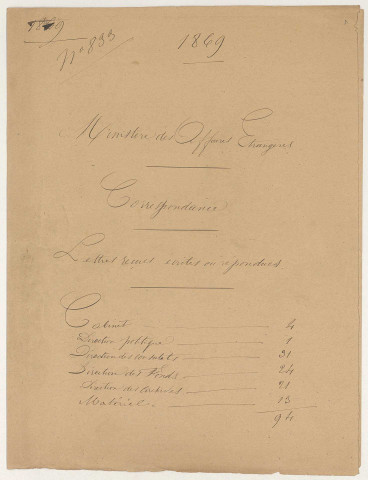 1869
Nº 833
1869
Ministère des Affaires Etrangères
Correspondance
Lettres reçues écrites ou répondues
Cabinet 4
Direction politique 1
Direction des Consulats 31
Direction des Fonds 24
Direction des Archives 21
Matériel. 13
94